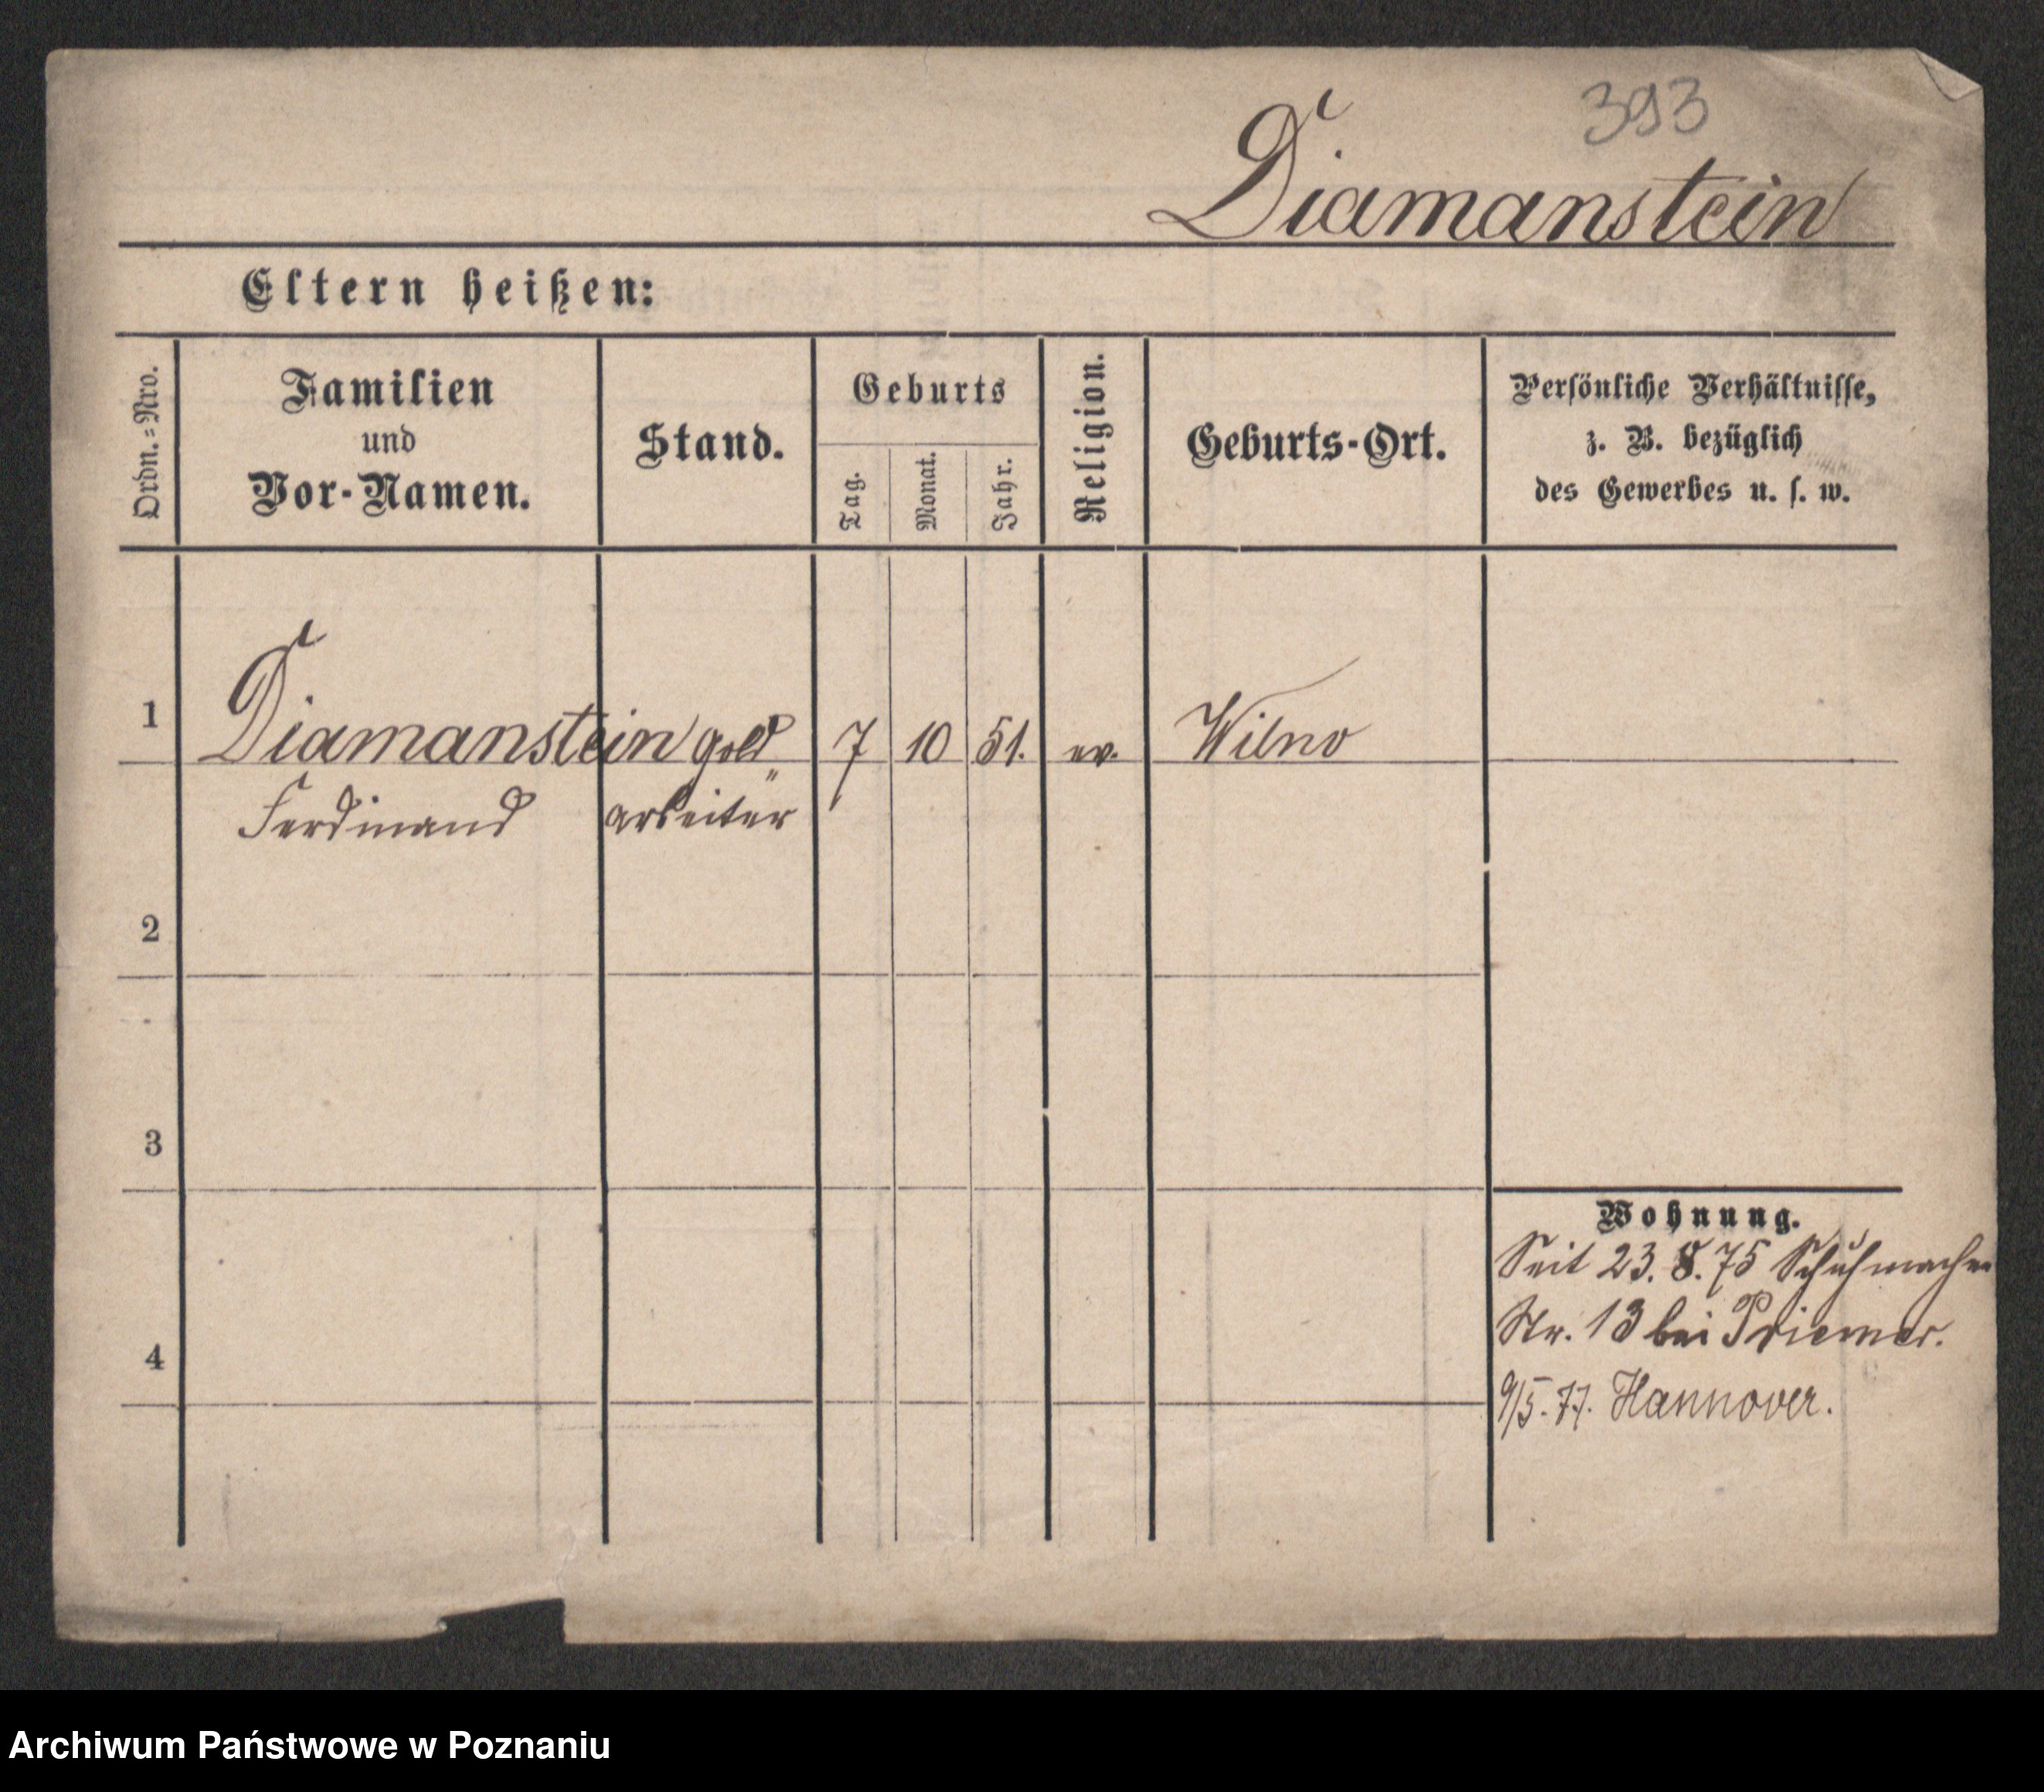 393
Diamanstein
Eltern heißen:
Ordn.=Nro.
Familien
und
Vor-Namen.
Stand.
Geburts
Tag.
Monat.
Jahr.
Religion.
Geburts-Ort.
Persönliche Verhältnisse,
z. B. bezüglich
des Gewerbes u. s. w.
1
Diamanstein gold„ 7 10 51. ev. Wilno
Ferdinand arbeiter
2
3
4
Wohnung.
Seit 23. 8. 75 Schuhmacher
Str. 13 bei Priemer.
9/5. 77. Hannover.
Archiwum Państwowe w Poznaniu